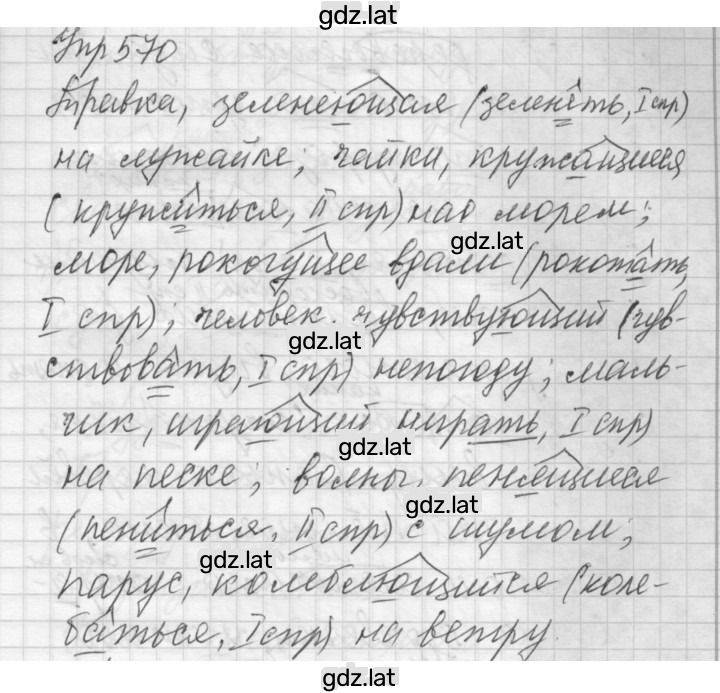 gdz.lat
Упр 570
Травка, зеленеющая (зеленеть, I спр)
на лужайке; чайки, кружащиеся
(кружиться, II спр) над морем;
gdz.lat
море, рокочущее вдали (рокотать,
I спр); человек. чувствующий (чув-
gdz.lat
ствовать, I спр) непогоду; маль-
чик, играющий играть, I спр)
gdz.lat
на песке; волны. пенящиеся
gdz.lat
(пениться, II спр) с шумом;
gdz.lat
парус, колеблющийся (коле-
баться, I спр) на ветру.
gdz.lat